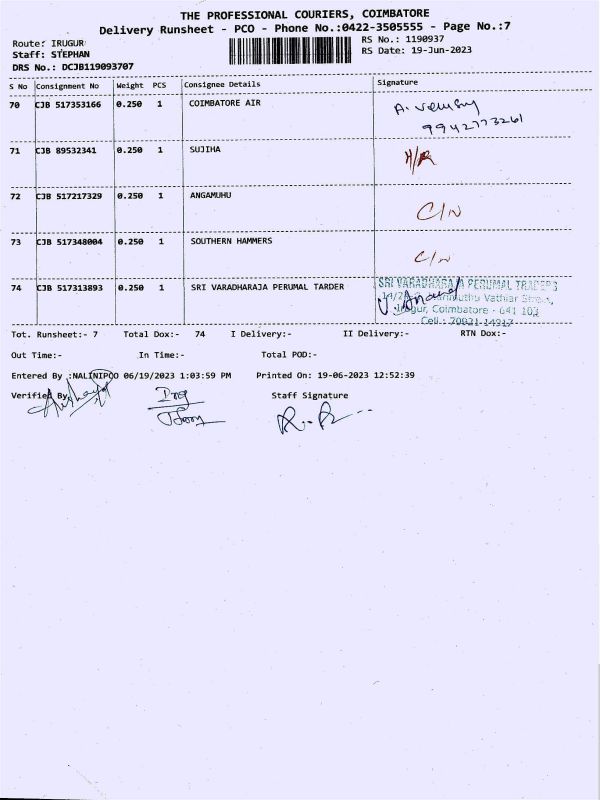 THE PROFESSIONAL COURIERS, COIMBATORE
Delivery Runsheet - PCO - Phone No.:0422-3505555 - Page No.:7
Route: IRUGUR
RS No.: 1190937
Staff: STEPHAN
RS Date: 19-Jun-2023
DRS No.: DCJB119093707
S No Consignment No Weight PCS Consignee Details Signature
70 CJB 517353166 0.250 1 COIMBATORE AIR
9942773261
71 CJB 89532341 0.250 1 SUJIHA H/R
72 CJB 517217329 0.250 1 ANGAMUHU C/N
73 CJB 517348004 0.250 1 SOUTHERN HAMMERS C/N
74 CJB 517313893 0.250 1 SRI VARADHARAJA PERUMAL TARDER
SRI VARADHARAJA PERUMAL TRADERS
Vathiar Street,
Irugur, Coimbatore - 641 103
Cell : 70921 14917
Tot. Runsheet:- 7 Total Dox:- 74 I Delivery:- II Delivery:- RTN Dox:-
Out Time:- In Time:- Total POD:-
Entered By :NALINIPCO 06/19/2023 1:03:59 PM Printed On: 19-06-2023 12:52:39
Verified By, Staff Signature